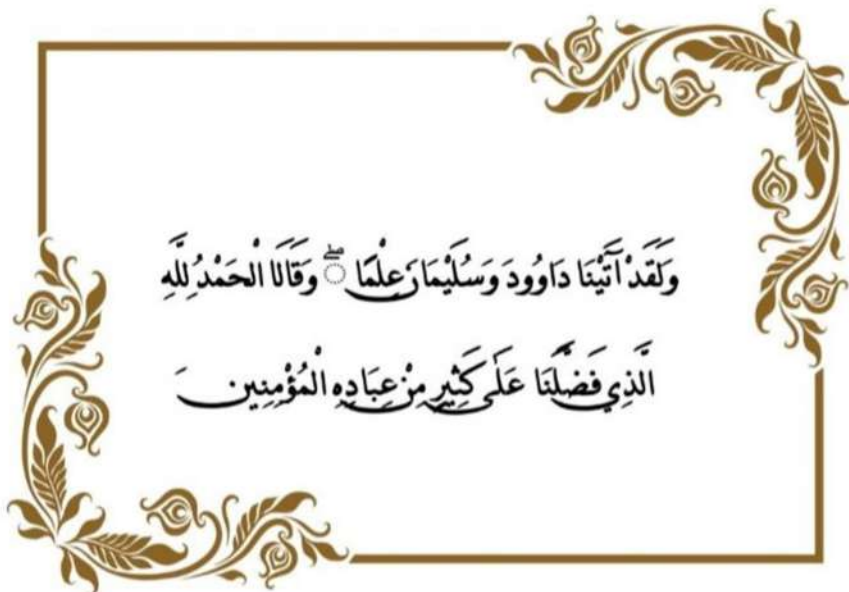 وَلَقَدْ آتَيْنَا دَاوُودَ وَسُلَيْمَانَ عِلْمًا ۖ وَقَالَا الْحَمْدُ لِلَّهِ
الَّذِي فَضَّلَنَا عَلَى كَثِيرٍ مِنْ عِبَادِهِ الْمُؤْمِنِينَ